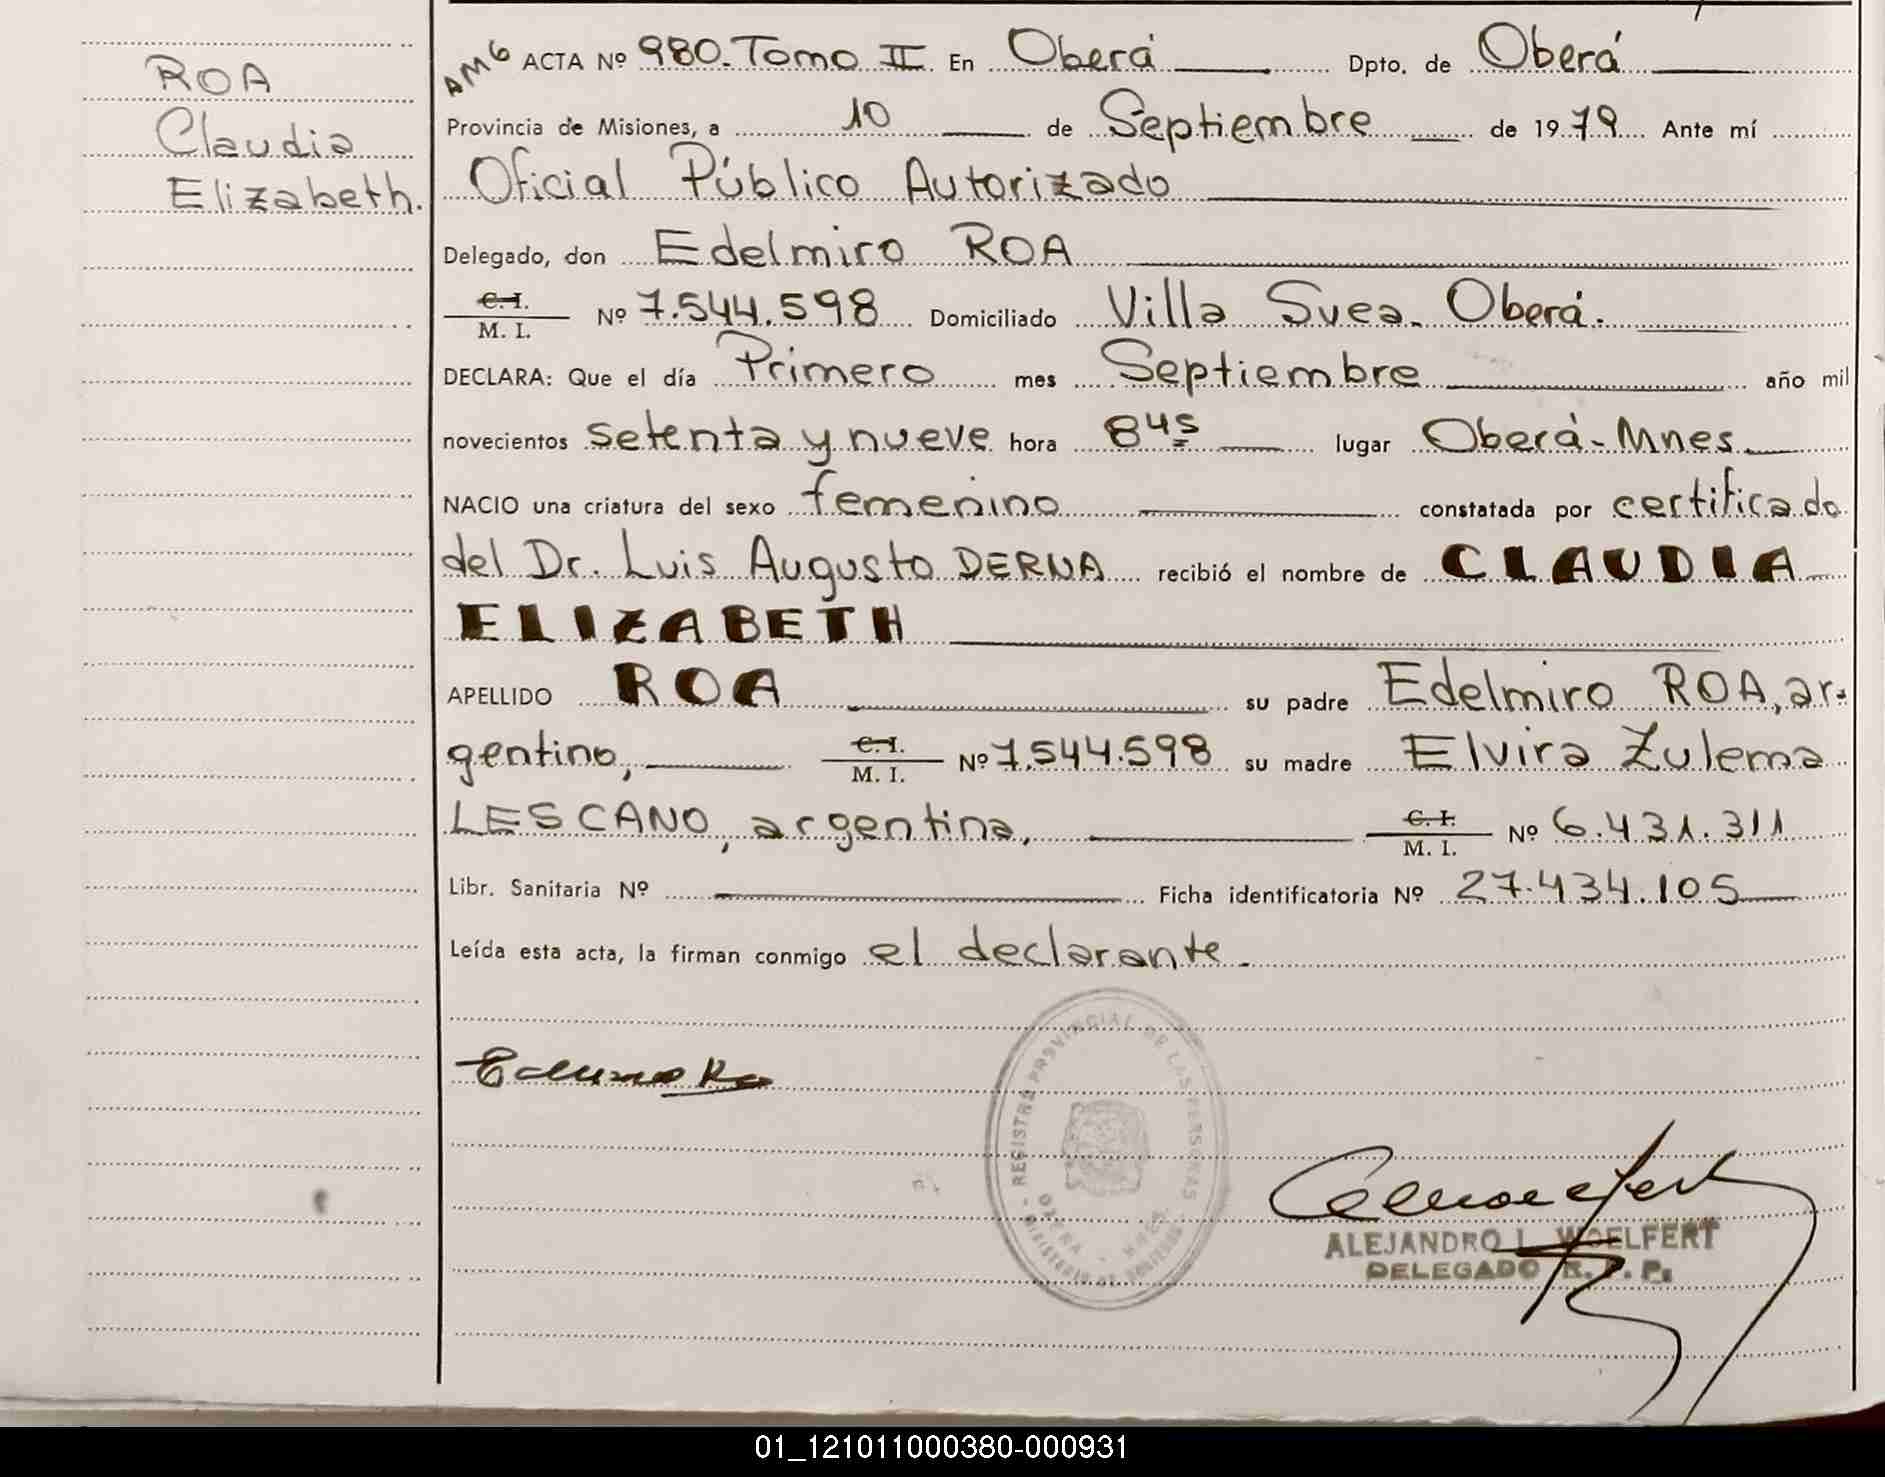 ROA
Claudia
Elizabeth.
AMG ACTA Nº 980. Tomo II En Oberá Dpto. de Oberá
Provincia de Misiones, a 10 de Septiembre de 1979 Ante mí
Oficial Público Autorizado
Delegado, don Edelmiro ROA
C. I.
M. I. Nº 7.544.598 Domiciliado Villa Svea. Oberá.
DECLARA: Que el día Primero mes Septiembre año mil
novecientos setenta y nueve hora 8 45 lugar Oberá-Mnes.
NACIO una criatura del sexo femenino constatada por certificado
del Dr. Luis Augusto DERNA recibió el nombre de CLAUDIA
ELIZABETH
APELLIDO ROA su padre Edelmiro ROA, ar-
gentino, C. I.
M. I. Nº 7.544.598 su madre Elvira Zulema
LESCANO, argentina, C. I.
M. I. Nº 6.431.311
Libr. Sanitaria Nº Ficha identificatoria Nº 27.434.105
Leída esta acta, la firman conmigo el declarante.
REGISTRO PROVINCIAL DE LAS PERSONAS
OBERA - MNES.
MINISTERIO DE GOBIERNO
ALEJANDRO L. WOELFERT
DELEGADO R. P. P.
01_121011000380-000931